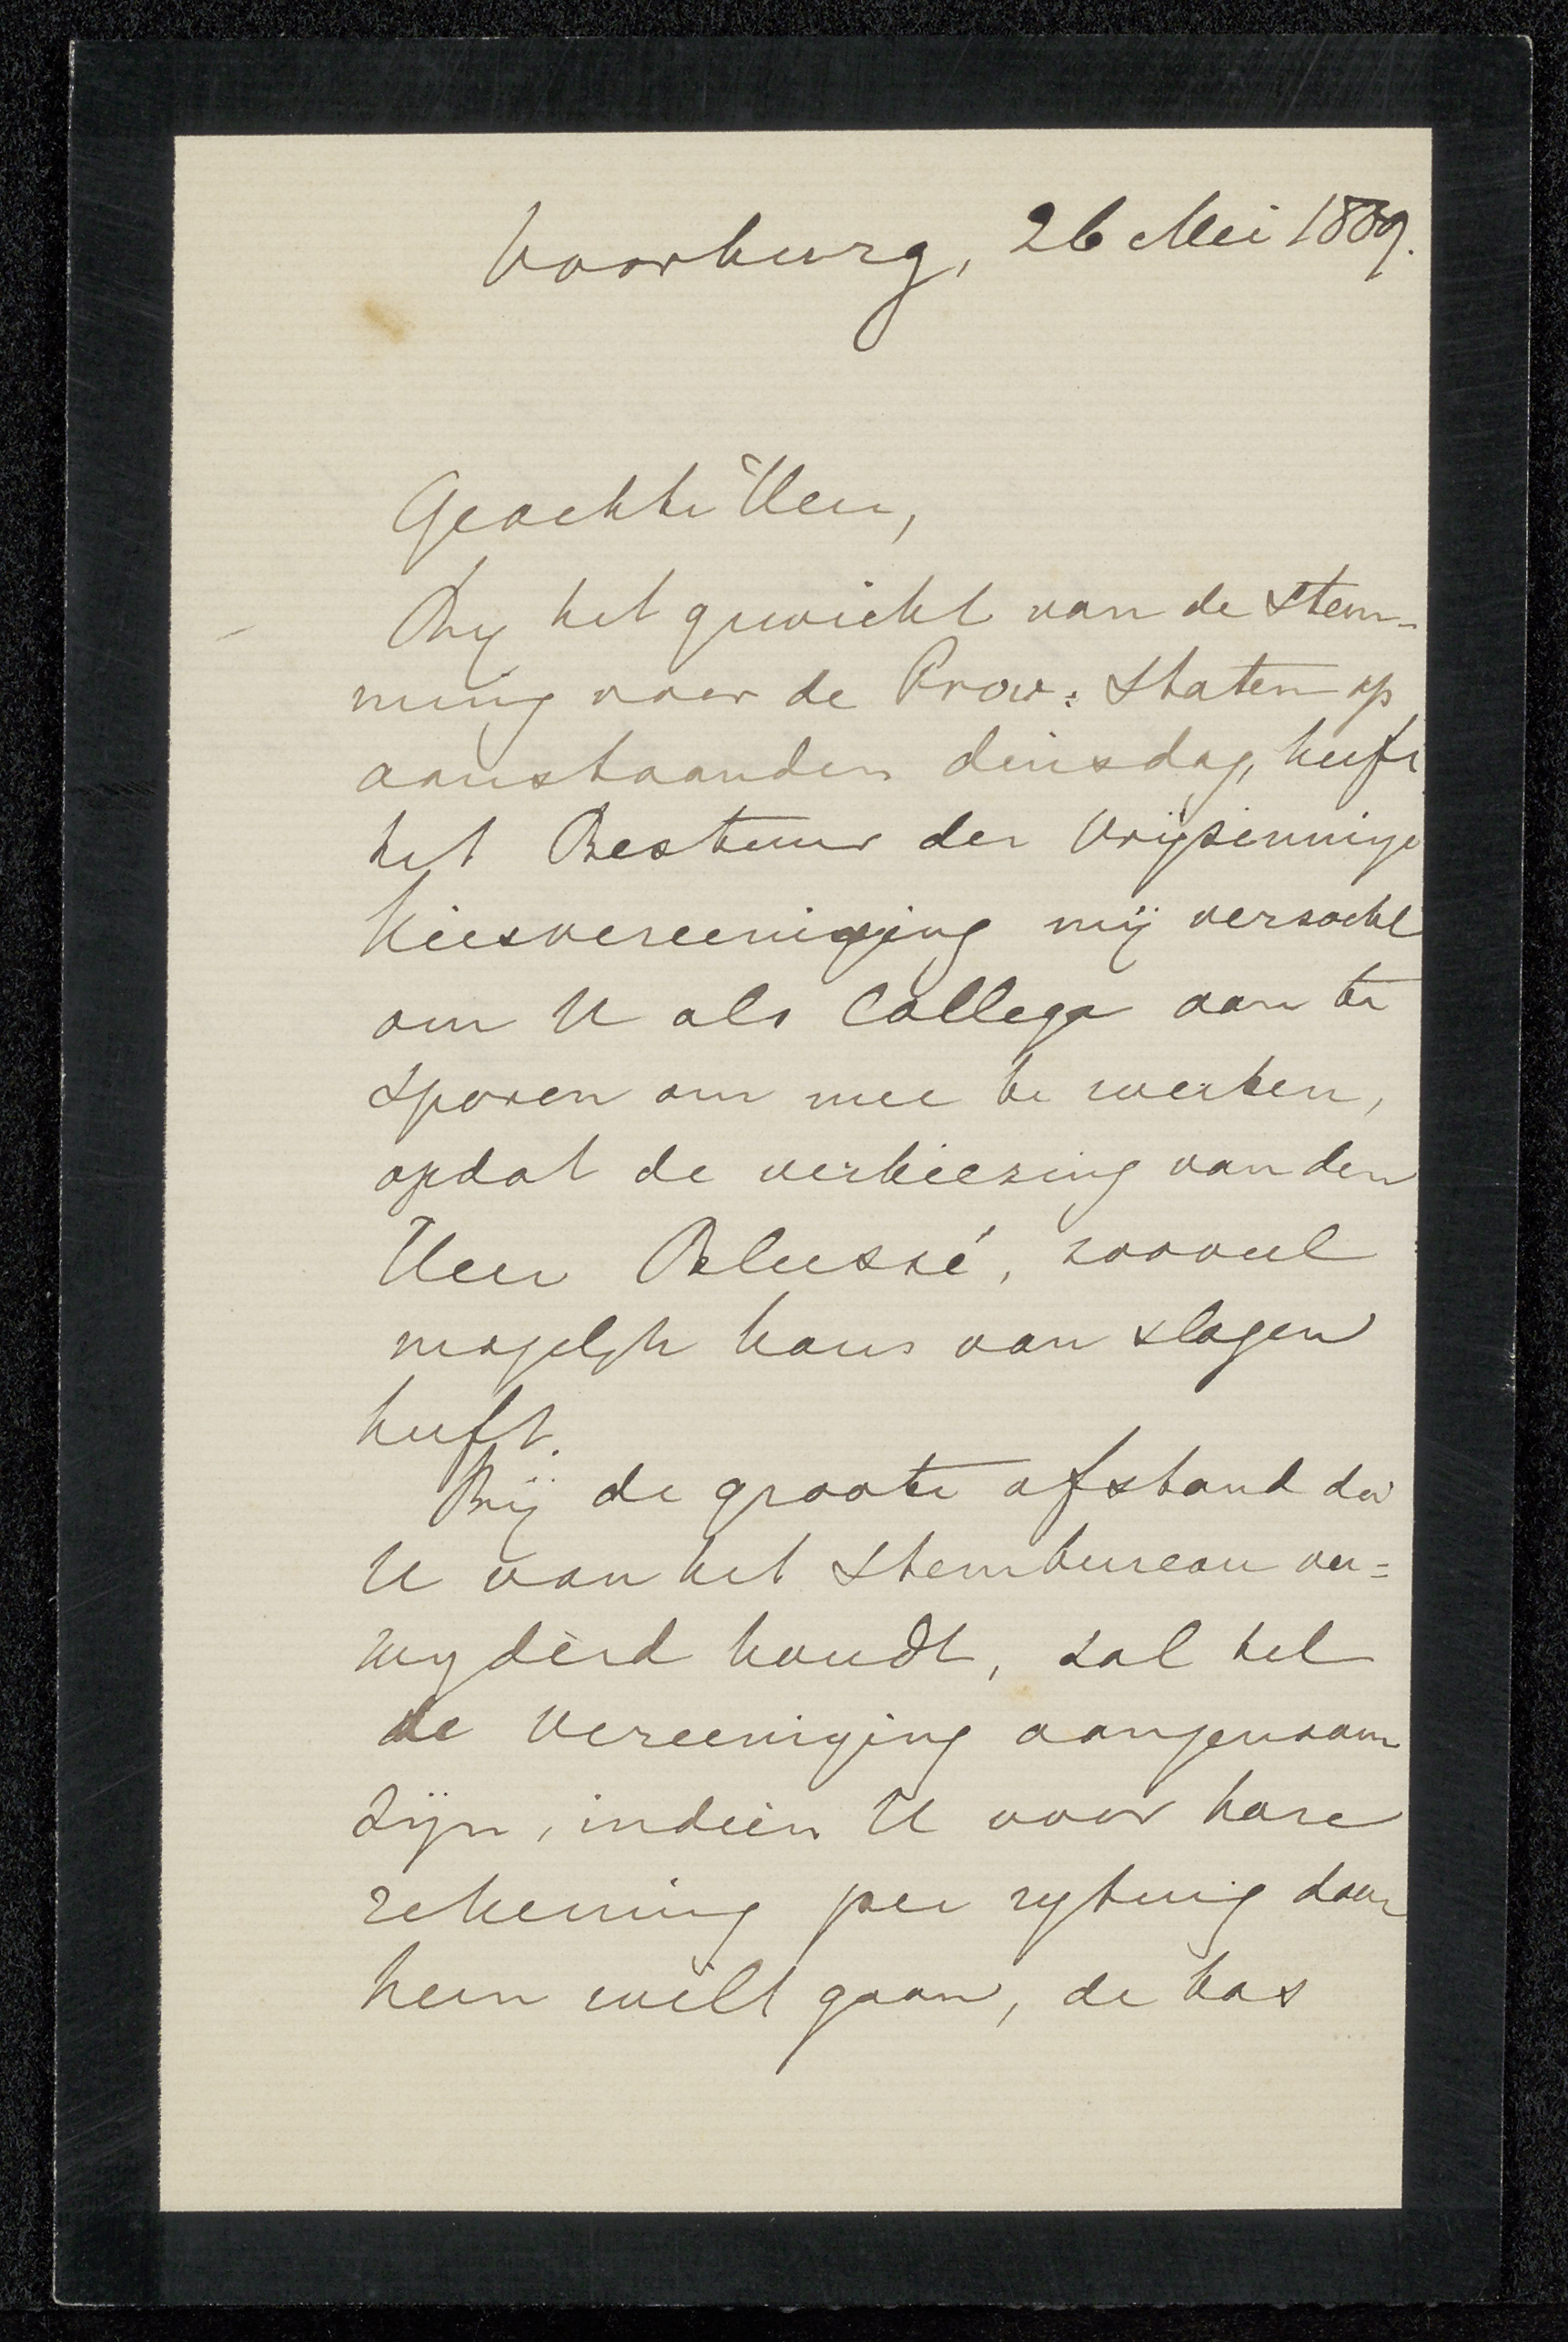 Voorburg, 26 Mei 1889.
Geachte Heer,
Bij het gewicht van de stem-
ming voor de Prov: Staten op
aanstaanden dinsdag, heeft
het Bestuur der Vrijzinnige
Kiesvereeniging mij verzocht
om U als Collega aan te
sporen om mee te werken,
opdat de verkiezing van den
Heer Blussé, zooveel
mogelijk kans van slagen
heeft.
Bij de groote afstand die
U van het Stembureau ver=
wijderd houdt, zal het
de Vereeniging aangenaam
zijn, indien U voor hare
rekening per rijtuig daar
heen wilt gaan, de kas